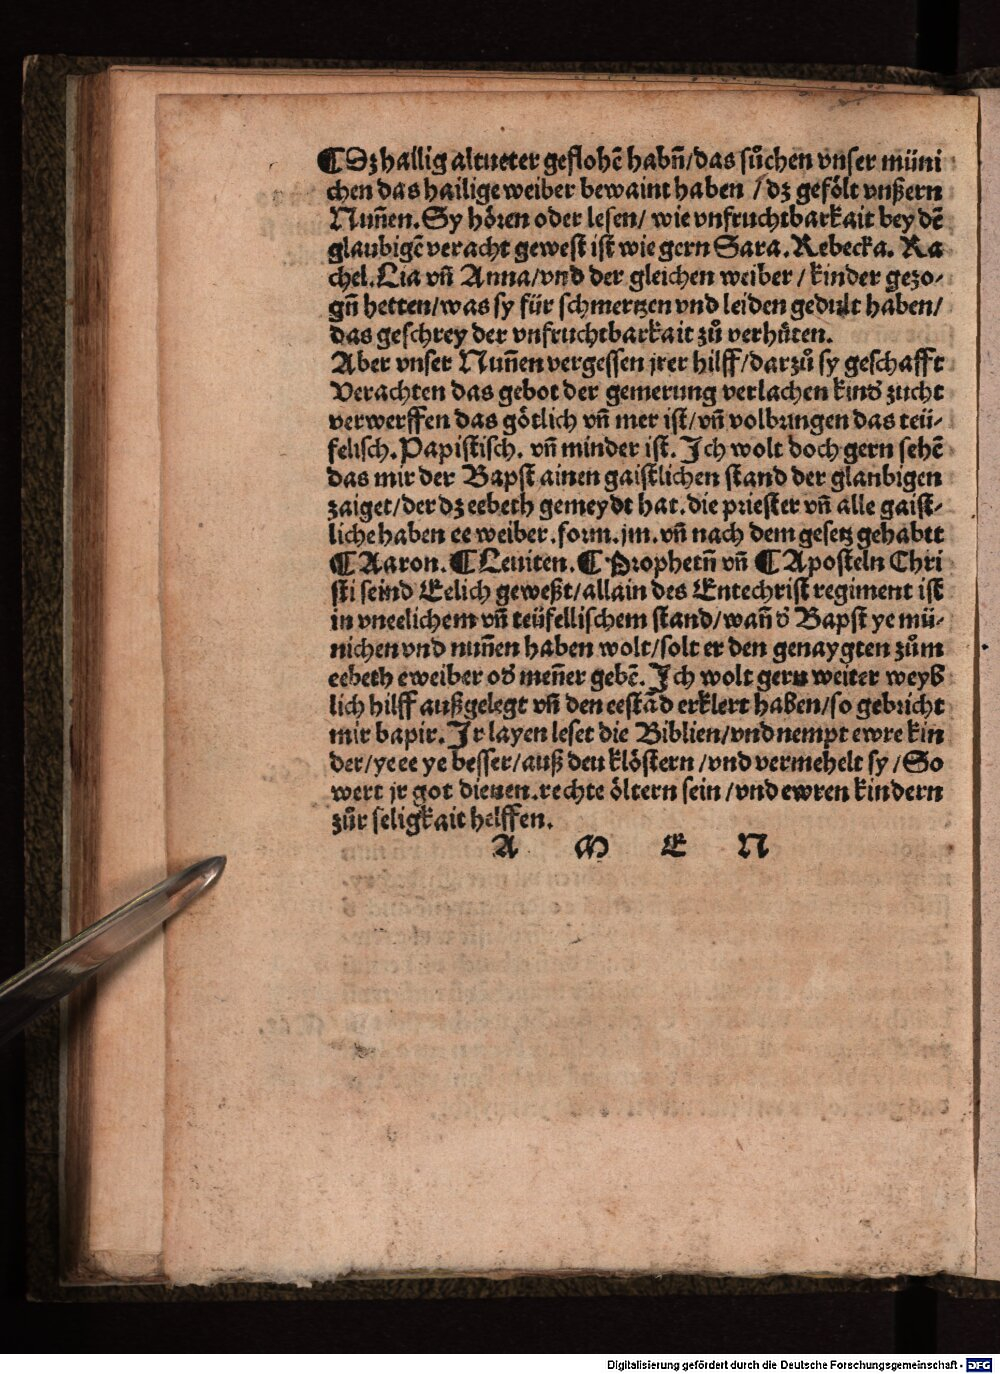 ¶Dz hallig altueter geflohē habn̄/das sůchen vnser müni
chen das hailige weiber bewaint haben /dz gefölt vnßern
Nun̄en. Sy hören oder lesen/ wie vnfruchtbarkait bey dē
glaubigē veracht gewest ist wie gern Sara. Rebecka. Ra
chel. Lia vn̄ Anna/vnd der gleichen weiber / kinder gezo-
gn̄ hetten/was sy für schmertzen vnd leiden gedult haben/
das geschrey der vnfruchtbarkait zů verhüten.
Aber vnser Nun̄en vergessen jrer hilff/darzů sy geschafft
Verachten das gebot der gemerung verlachen kind̕ zucht
verwerffen das götlich vn̄ mer ist/vn̄ volbringen das teü-
felisch. Papistisch. vn̄ minder ist. Ich wolt doch gern sehē
das mir der Bapst ainen gaistlichen stand der glaubigen
zaiget/der dz eebeth gemeydt hat. die priester vn̄ alle gaist-
liche haben ee weiber. forn. jm. vn̄ nach dem gesetz gehabtt
¶Aaron. ¶Leuiten. ¶Prophetn̄ vn̄ ¶Aposteln Chri
sti seind Eelich geweßt/allain des Entechrist regiment ist
in vneelichem vn̄ teüfellischem stand/wan̄ d̕ Bapst ye mü-
nichen vnd nun̄en haben wolt/solt er den genaygten zům
eebeth eweiber od̕ men̄er gebē. Ich wolt gern weiter weyß
lich hilff außgelegt vn̄ den eestād erklert haben/so gebricht
mir bapir. Ir layen leset die Biblien/vnd nempt ewre kin
der/ye ee ye besser/auß den klöstern /vnd vermehelt sy /So
wert jr got dienen. rechte öltern sein /vnd ewren kindern
zůr seligkait helffen.
A M E N
Digitalisierung gefördert durch die Deutsche Forschungsgemeinschaft - DFG